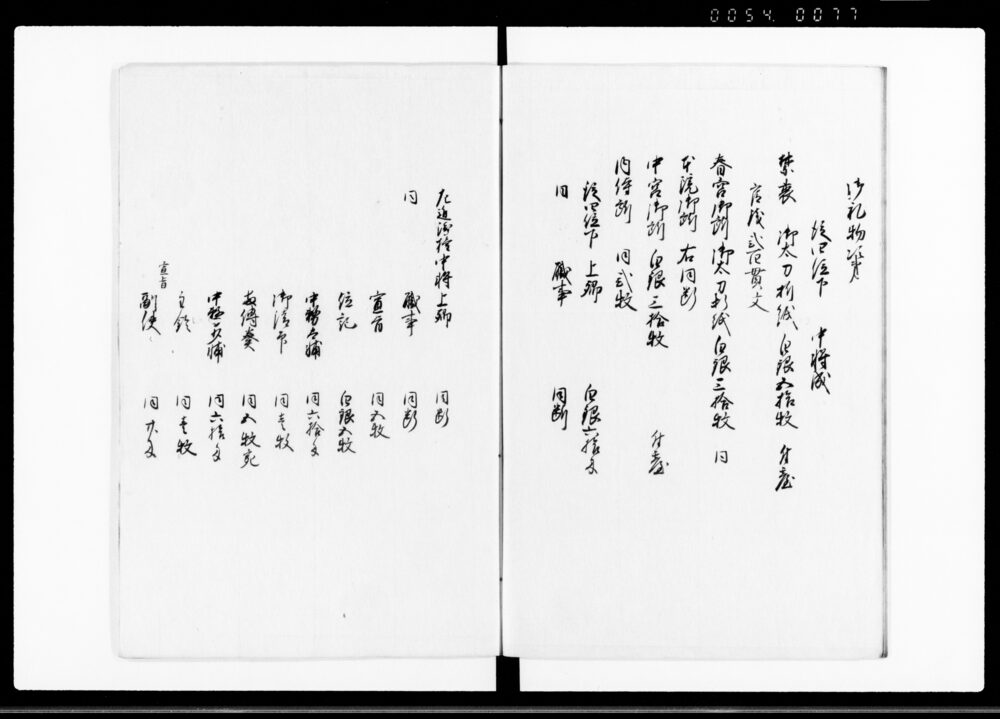 0054. 0077
御礼物
従四位下 中将成
禁裏 御太刀折紙 白銀五拾枚 台
貫文
春宮御所 御太刀折紙 白銀三拾枚 同
本院御所 右同断
中宮御所 白銀三拾枚 台
内侍所 同弐枚
従四位下 上卿 白銀六拾目
同 職事 同断
左近衛権中将上卿 同断
同 職事 同断
宣旨 同五枚
位記 白銀五枚
中務大輔 同六拾目
御請印 同壱枚
両伝奏 同五枚宛
中務少輔 同六拾目
主鈴 同壱枚
宣旨
副使 同